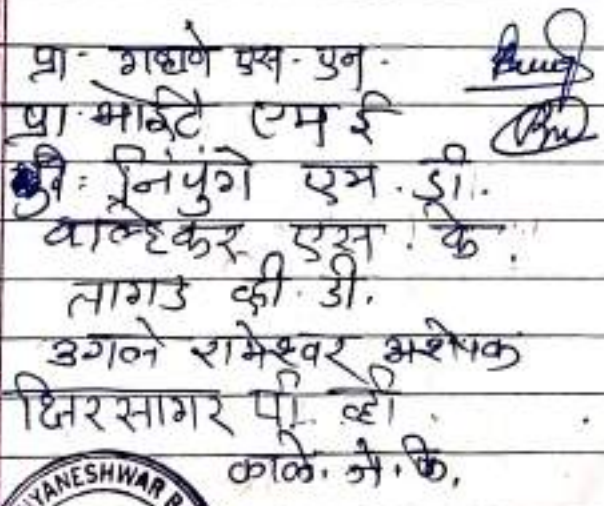 प्रा. गव्हाणे एस. एन.
प्रा भोईटे एम ई
निंपुंगे एम. डी.
वाल्हेकर एस. के.
तागड व्ही. डी.
उगले रामेश्वर अशोक
क्षिरसागर पी. व्ही.
काळे. जे. के.
YANESHWAR